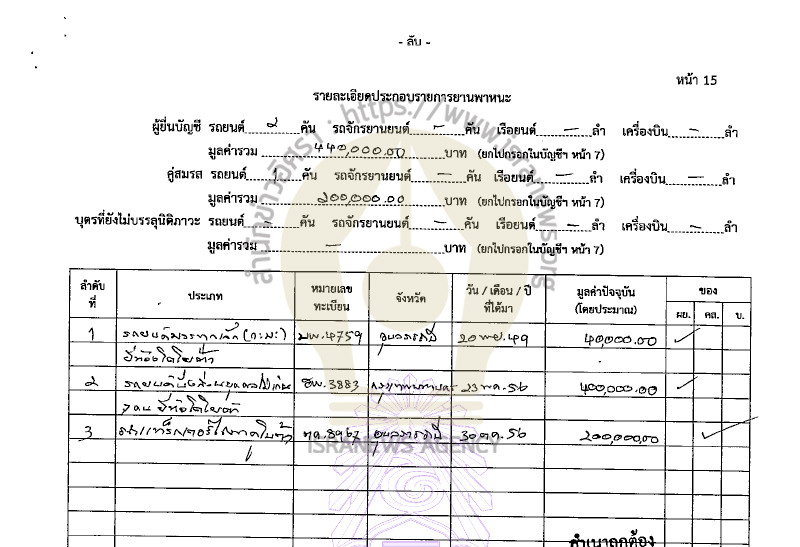 - ลับ -
หน้า 15
รายละเอียดประกอบรายการยานพาหนะ
ผู้ยื่นบัญชี รถยนต์ ๒ คัน รถจักรยานยนต์ – คัน เรือยนต์ – ลำ เครื่องบิน – ลำ
มูลค่ารวม ๔๔๐,๐๐๐.๐๐ บาท (ยกไปกรอกในบัญชีฯ หน้า 7)
คู่สมรส รถยนต์ 1 คัน รถจักรยานยนต์ – คัน เรือยนต์ – ลำ เครื่องบิน – ลำ
มูลค่ารวม ๒๐๐,๐๐๐.๐๐ บาท (ยกไปกรอกในบัญชีฯ หน้า 7)
บุตรที่ยังไม่บรรลุนิติภาวะ รถยนต์ – คัน รถจักรยานยนต์ – คัน เรือยนต์ – ลำ เครื่องบิน – ลำ
มูลค่ารวม – บาท (ยกไปกรอกในบัญชีฯ หน้า 7)
ลำดับที่ ประเภท หมายเลขทะเบียน จังหวัด วัน / เดือน / ปี ที่ได้มา มูลค่าปัจจุบัน (โดยประมาณ) ของ
ผย. คส. บ.
1 รถยนต์บรรทุกเล็ก (กะบะ) อุบลราชธานี 20 พ.ย. 49 40,000.00 ✓
ยี่ห้อโตโยต้า
๒ 3883 กรุงเทพมหานคร 23 400,000.00 ✓
7 คน ยี่ห้อโตโยต้า
3 อุบลราชธานี 30 200,000.00 ✓
สำเนาถูกต้อง
สำนักข่าวอิศรา : https://www.isranews.org
ISRANEWS AGENCY